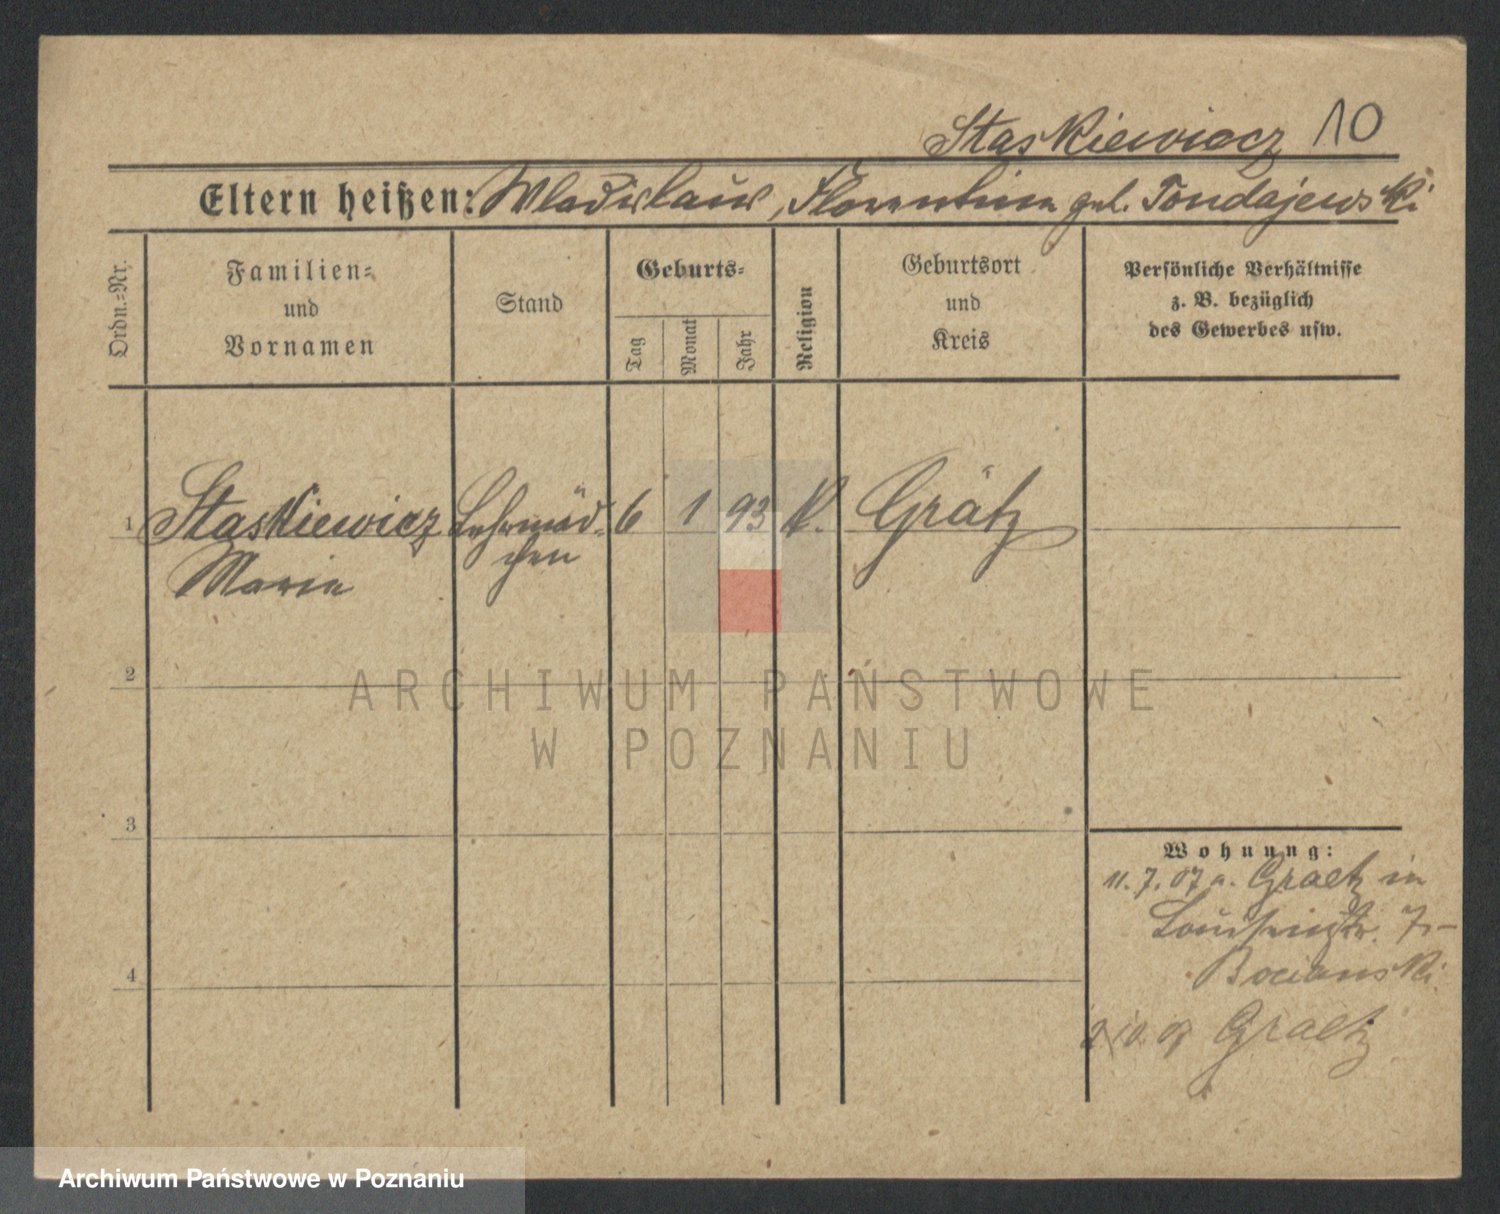 Staskiewicz 10
Eltern heißen: Wladislaus, Florentine geb. Tondajewski
Ordn.-Nr.
Familien- und Vornamen
Stand
Geburts-
Tag
Monat
Jahr
Religion
Geburtsort und Kreis
Persönliche Verhältnisse z. B. bezüglich des Gewerbes usw.
1 Staskiewicz Lehrmäd- 6 1 93 K. Grätz
Marie chen
2
ARCHIWUM PAŃSTWOWE
W POZNANIU
3
Wohnung:
11.7.07 a. Graetz in
Louisenstr.
Bocianski
4
10. 07 Graetz
Archiwum Państwowe w Poznaniu